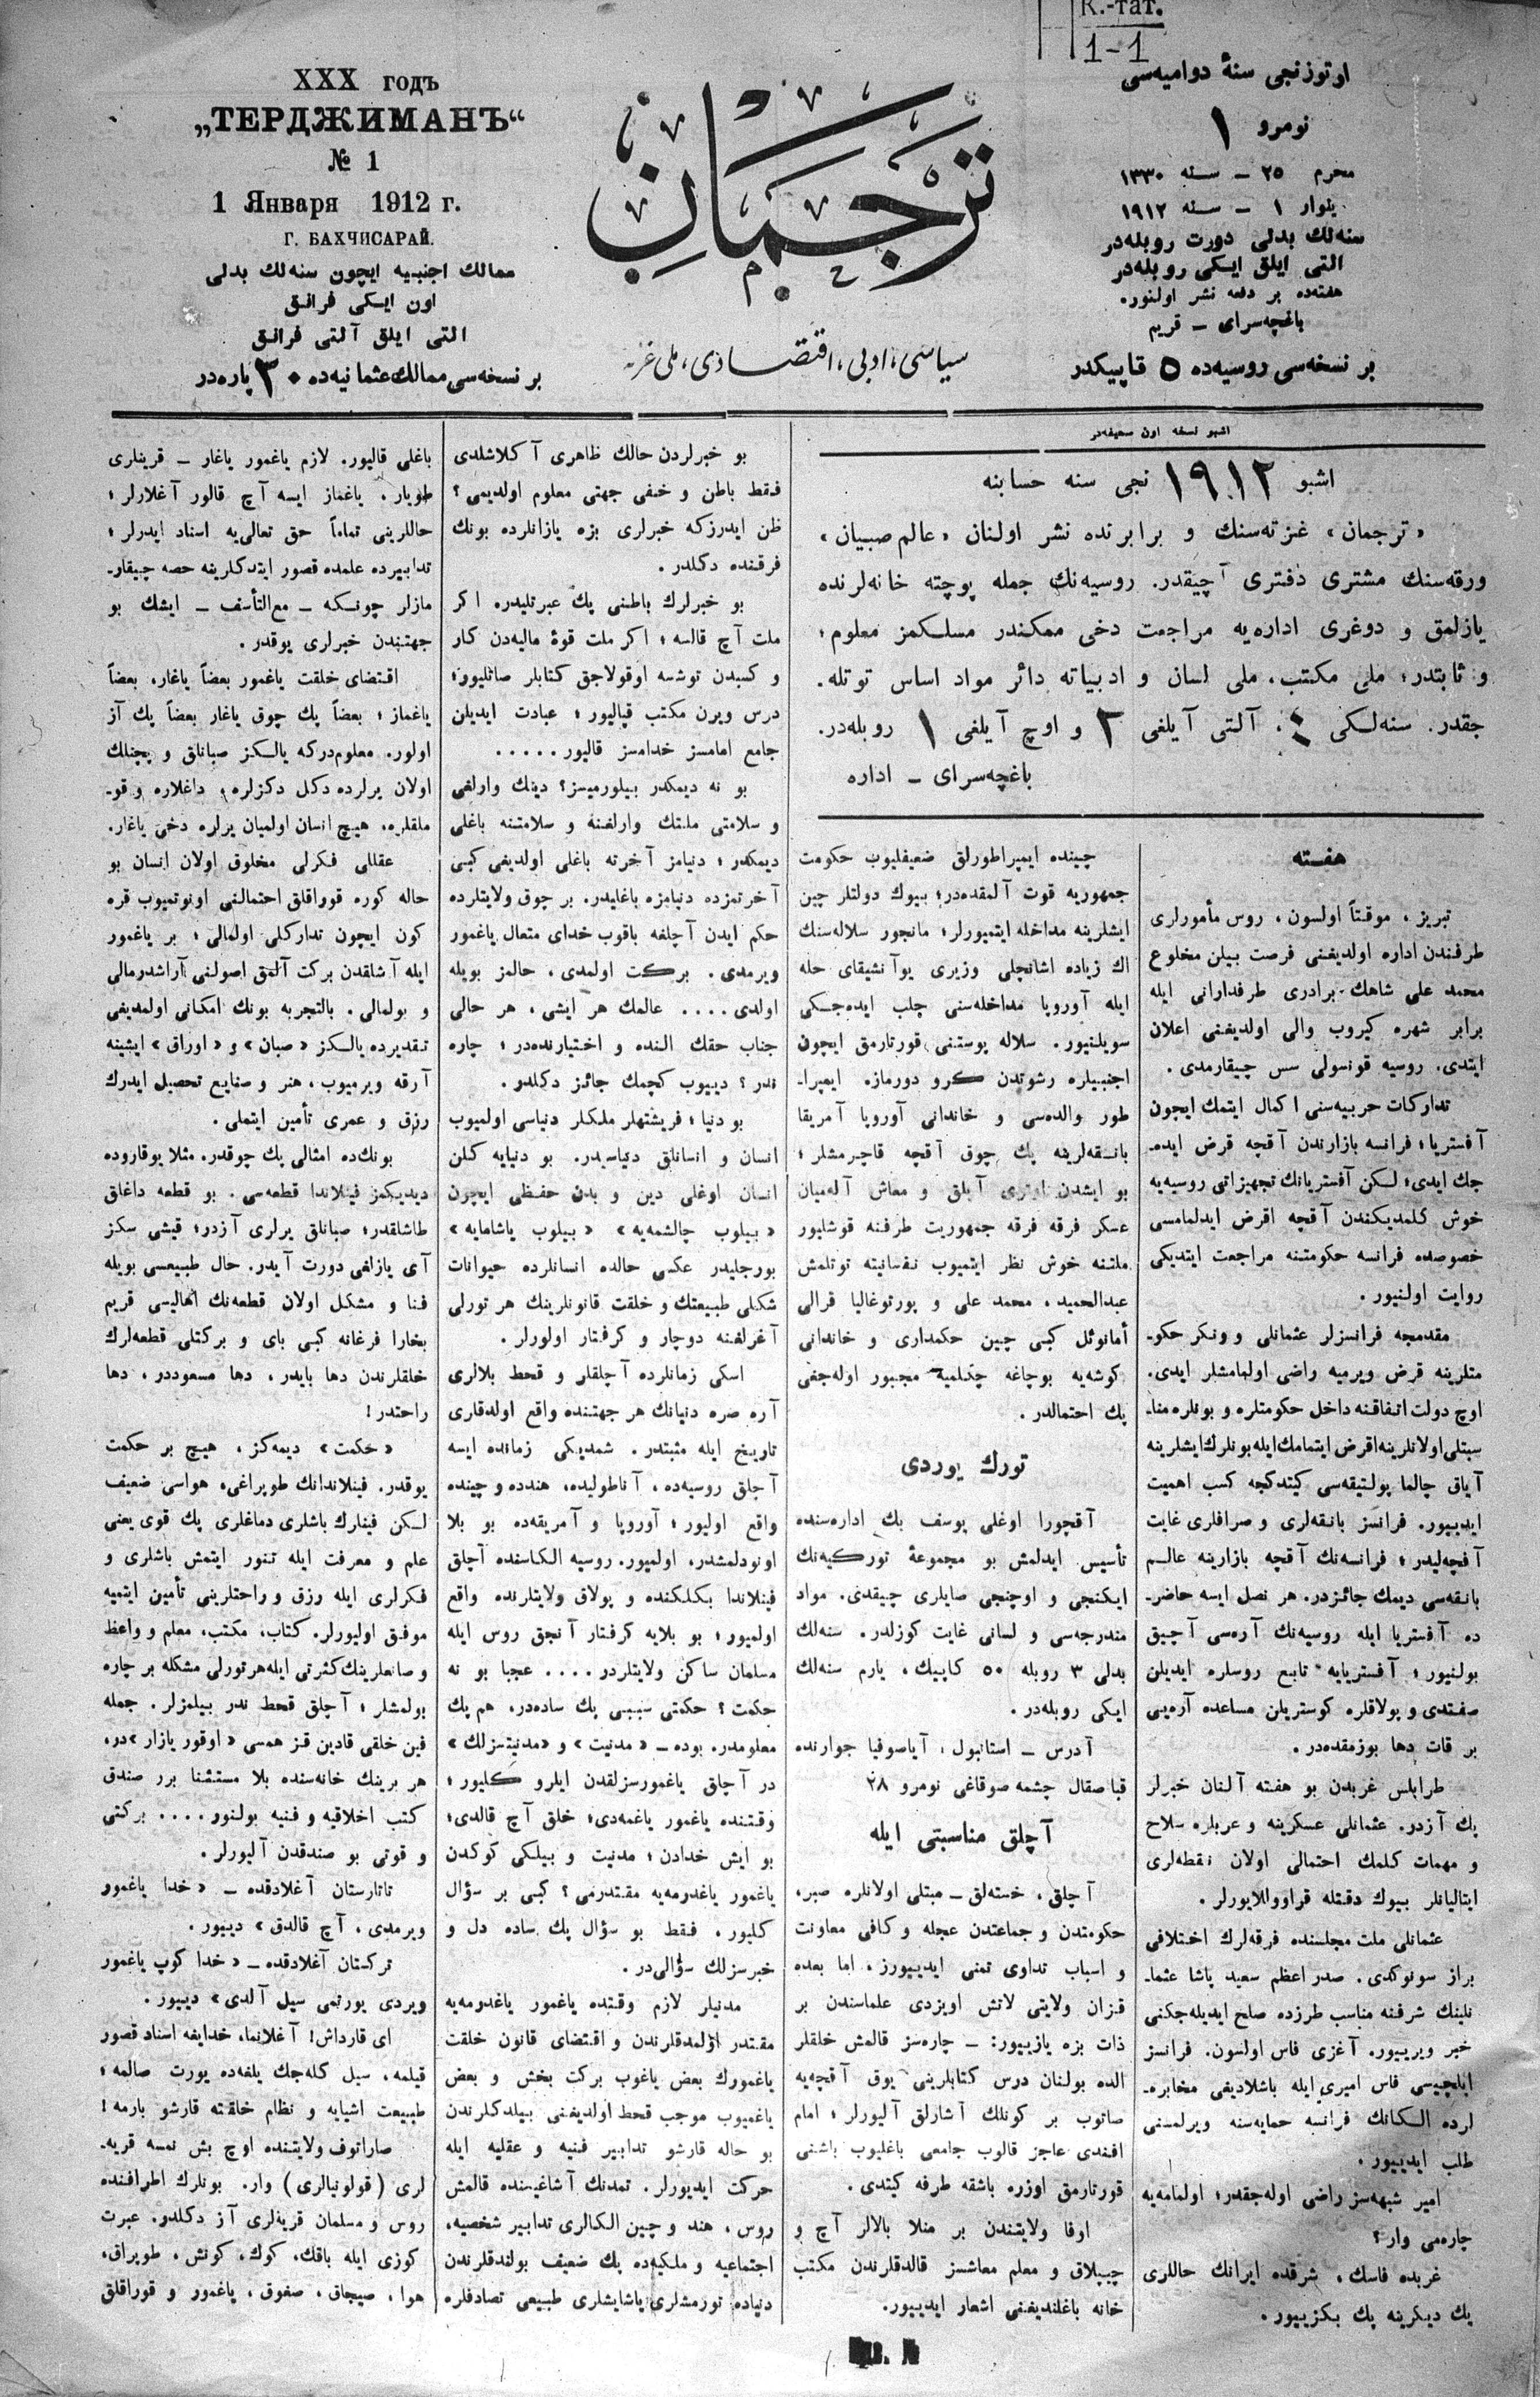 К.-тат.
1-1
XXX годъ
„ТЕРДЖИМАНЪ“
№ 1
1 Января 1912 г.
Г. БАХЧИСАРАЙ.
ممالك اجنبیه ایچون سنه‌لك بدلی
اون ایكی فرانق
التی ایلق آلتی فرانق
بر نسخه‌سی ممالك عثمانیه‌ده ٣٠ پاره‌در
ترجمان
سیاسی، ادبی، اقتصادی، ملی غزته
اوتوزنجی سنهٔ دوامیه‌سی
نومرو ١
محرم ٢٥ – سنه ١٣٣٠
ینوار ١ – سنه ١٩١٢
سنه‌لك بدلی دورت روبله‌در
التی ایلق ایكی روبله‌در
هفته‌ده بر دفعه نشر اولنور.
باغچه‌سرای – قریم
بر نسخه‌سی روسیه‌ده ٥ قاپیكدر
اشبو نسخه اون صحیفه‌در
اشبو ١٩١٢ نجی سنه حسابنه
«ترجمان» غزته‌سنك و برابرنده نشر اولنان «عالم صبیان»
ورقه‌سنك مشتری دفتری آچیقدر. روسیه‌نك جمله پوچته خانه‌لرنده
یازلمق و دوغری اداره‌یه مراجعت دخی ممكندر مسلكمز معلوم؛
و ثابتدر؛ ملی مكتب، ملی لسان و ادبیاته دائر مواد اساس توتله.
جقدر. سنه‌لكی ٤، آلتی آیلغی ٢ و اوچ آیلغی ١ روبله‌در.
باغچه‌سرای – اداره
هفته
تبریز، موقتاً اولسون، روس مأمورلری
طرفندن اداره اولدیغنی فرصت بیلن مخلوع
محمد علی شاهك برادری طرفدارانی ایله
برابر شهره كیروب والی اولدیغنی اعلان
ایتدی. روسیه قونسولی سس چیقارمدی.
تداركات حربیه‌سنی اكمال ایتمك ایچون
آفستریا؛ فرانسه بازارندن آقچه قرض ایده‌ـ
جك ایدی؛ لكن آفستریانك تجهیزاتی روسیه‌یه
خوش كلمدیكندن آقچه اقرض ایدلمامسی
خصوصده فرانسه حكومتنه مراجعت ایتدیكی
روایت اولنیور.
مقدمجه فرانسزلر عثمانلی و ونكر حكوـ
متلرینه قرض ویرمیه راضی اولمامشلر ایدی.
اوچ دولت اتفاقنه داخل حكومتلره و بونلره مناـ
سبتلی اولانلرینه اقرض ایتمامك ایله بونلرك ایشلرینه
آیاق چالما پولتیقه‌سی كیتدكجه كسب اهمیت
ایدییور. فرانسز بانقه‌لری و صرافلری غایت
آقچه‌لیدر؛ فرانسه‌نك آقچه بازارینه عالم
بانقه‌سی دیمك جائزدر. هر نصل ایسه حاضرـ
ده آفستریا ایله روسیه‌نك آره‌سی آچیق
بولنیور؛ آفستریایه تابع روسلره ایدیلن
صفتدی و پولاقلره كوستریلن مساعده آره‌یی
بر قات دها بوزمقده‌در.
طرابلس غربدن بو هفته آلنان خبرلر
پك آزدو. عثمانلی عسكرینه و عربلره سلاح
و مهمات كلمك احتمالی اولان نقطه‌لری
ایتالیانلر بیوك دقتله قراووللایورلر.
عثمانلی ملت مجلسنده فرقه‌لرك اختلافی
براز سونوكدی. صدر اعظم سعید پاشا عثماـ
نلینك شرفنه مناسب طرزده صلح ایدیله‌جكنی
خبر ویرییور. آغزی فاس اولسون. فرانسز
ایلچیسی فاس امیری ایله باشلادیغی مخابره‌ـ
لرده الكانك فرانسه حمایه‌سنه ویرلمسنی
طلب ایدییور.
امیر شبهه‌سز راضی اوله‌جقدر؛ اولمامه‌یه
چاره‌می وار؟
غربده فاسك، شرقده ایرانك حاللری
پك دیكرینه پك بكزییور.
چینده ایمپراطورلق ضعیفلیوب حكومت
جمهوریه قوت آلمقده‌در؛ بیوك دولتلر چین
ایشلرینه مداخله ایتمیورلر؛ مانجور سلاله‌سنك
اك زیاده اشانچلی وزیری یوآنشیقای حله
ایله آوروپا مداخله‌سنی جلب ایده‌جكی
سویلنیور. سلاله پوستنی قورتارمق ایچون
اجنبیلره رشوتدن كرو دورمازه. ایمپراـ
طور والده‌سی و خاندانی آوروپا آمریقا
بانقه‌لرینه پك چوق آقچه قاچیرمشلر؛
بو ایشدن اوتری آیلق و معاش آله‌میان
عسكر فرقه فرقه جمهوریت طرفنه قوشلیور
ملتنه خوش نظر ایتمیوب نفسانیته توتلمش
عبدالحمید، محمد علی و پورتوغالیا قرالی
أمانوئل كبی چین حكمداری و خاندانی
كوشه‌یه بوجاغه چكلمیه مجبور اوله‌جغی
پك احتمالدر.
تورك یوردی
آقچورا اوغلی یوسف بك اداره‌سنده
تأسیس ایدلمش بو مجموعهٔ توركیه‌نك
ایكنجی و اوچنجی صایلری چیقدی. مواد
مندرجه‌سی و لسانی غایت كوزلدر. سنه‌لك
بدلی ٣ روبله ٥٠ كاپیك، یارم سنه‌لك
ایكی روبله‌در.
آدرس – استانبول، آیاصوفیا جوارنده
قباصقال چشمه صوقاغی نومرو ٢٨
آچلق مناسبتی ایله
آچلق، خسته‌لق – مبتلی اولانلره صبر،
حكومتدن و جماعتدن عجله و كافی معاونت
و اسباب تداوی تمنی ایدییورز، اما بعده
قزان ولایتی لانش اویزدی علماسندن بر
ذات بزه یازییور: – چاره‌سز قالمش خلقلر
الده بولنان درس كتابلرینی یوق آقچه‌یه
صاتوب بر كونلك آشارلق آلیورلر؛ امام
افندی عاجز قالوب جامعی باغلیوب باشنی
قورتارمق اوزره باشقه طرفه كیتدی.
اوفا ولایتندن بر منلا بالالر آچ و
چیپلاق و معلم معاشسز قالدقلرندن مكتب
خانه باغلندیغنی اشعار ایدییور.
بو خبرلردن حالك ظاهری آكلاشلدی
فقط باطن و خفی جهتی معلوم اولدیمی؟
ظن ایدرزكه خبرلری بزه یازانلرده بونك
فرقنده دكلدر.
بو خبرلرك باطنی پك عبرتلیدر. اكر
ملت آچ قالسه؛ اكر ملت قوهٔ مالیه‌دن كار
و كسبدن توشسه اوقولاجق كتابلر صاتلیور؛
درس ویرن مكتب قپالیور؛ عبادت ایدیلن
جامع امامسز خدامسز قالیور.....
بو نه دیمكدر بیلورمیسز؟ دینك وارلغی
و سلامتی ملتك وارلغنه و سلامتنه باغلی
دیمكدر؛ دنیامز آخرته باغلی اولدیغی كبی
آخرتمزده دنیامزه باغلیدر. بر چوق ولایتلرده
حكم ایدن آچلغه باقوب خدای متعال یاغمور
ویرمدی. بركت اولمدی، حالمز بویله
اولدی.... عالمك هر ایشی، هر حالی
جناب حقك النده و اختیارنده‌در؛ چاره
ندر؟ دیییوب كچمك جائز دكلدر.
بو دنیا؛ فریشتهلر ملكلر دنیاسی اولمیوب
انسان و انسانلق دنیاسیدر. بو دنیایه كلن
انسان اوغلی دین و بدن حفظی ایچون
«بیلوب چالشمه‌یه» «بیلوب یاشامایه»
بورجلیدر عكسی حالده انسانلرده حیوانات
شكلی طبیعتك و خلقت قانونلرینك هر تورلی
آغرلغنه دوچار و كرفتار اولورلر.
اسكی زمانلرده آچلقلر و قحط بلالری
آره صره دنیانك هر جهتنده واقع اولدقاری
تاریخ ایله مثبتدر. شمدیكی زمانده ایسه
آچلق روسیه‌ده، آناطولیده، هندده و چینده
واقع اولیور؛ آوروپا و آمریقه‌ده بو بلا
اونودلمشدر، اولمیور. روسیه الكاسنده آچلق
فینلاندا بكلكنده و پولاق ولایتلرنده واقع
اولمیور؛ بو بلایه كرفتار آنجق روس ایله
مسلمان ساكن ولایتلردر.... عجبا بو نه
حكمت؟ حكمتی سببی پك ساده‌در، هم پك
معلومدر. بوده – «مدنیت» و «مدنیتسزلك»
در آچلق یاغمورسزلقدن ایلرو كلیور؛
وقتنده یاغمور یاغمه‌دی؛ خلق آچ قالدی؛
بو ایش خدادن؛ مدنیت و بیلكی كوكدن
یاغمور یاغدرمه‌یه مقتدرمی؟ كبی بر سؤال
كلیور. فقط بو سؤال پك ساده دل و
خبرسزلك سؤالی‌در.
مدنیلر لازم وقتده یاغمور یاغدرمه‌یه
مقتدر اولمدقلرندن و اقتضای قانون خلقت
یاغمورك بعض یاغوب بركت بخش و بعض
یاغمیوب موجب قحط اولدیغنی بیلدكلرندن
بو حاله قارشو تدابیر فنیه و عقلیه ایله
حركت ایدیورلر. تمدنك آشاغیسنده قالمش
روس، هند و چین الكالری تدابیر شخصیه،
اجتماعیه و ملكیه‌ده پك ضعیف بولندقلرندن
دنیاده تورمشلری یاشایشلری طبیعی تصادفلره
باغلی قالیور. لازم یاغمور یاغار – قرینلری
طویار. یاغماز ایسه آچ قالور آغلارلر؛
حاللرینی تماماً حق تعالی‌یه اسناد ایدرلر؛
تدابیرده علمده قصور ایتدكلرینه حصه چیقارـ
مازلر چونكه – مع التأسف – ایشك بو
جهتندن خبرلری یوقدر.
اقتضای خلقت یاغمور بعضاً یاغار، بعضاً
یاغماز؛ بعضاً پك چوق یاغار بعضاً پك آز
اولور. معلومدركه یالكز صبانلق و بچنلك
اولان یرلرده دكل دكزلره، داغلاره و قوـ
ملقلره، هیچ انسان اولمیان یرلره دخی یاغار.
عقللی فكرلی مخلوق اولان انسان بو
حاله كوره قوواقلق احتمالنی اونوتمیوب قره
كون ایچون تداركلی اولمالی؛ بر یاغمور
ایله آشلقدن بركت آلمق اصولنی آراشدرمالی
و بولمالی. بالتجربه بونك امكانی اولمدیغی
تقدیرده یالكز «صبان» و «اوراق» ایشینه
آرقه ویرمیوب، هنر و صنایع تحصیل ایدرك
رزق و عمری تأمین ایتملی.
بونك‌ده امثالی پك چوقدر. مثلا یوقاروده
دیدیكمز فینلاندا قطعه‌سی. بو قطعه داغلق
طاشلقدر؛ صبانلق یرلری آزدر؛ قیشی سكز
آی یازلغی دورت آیدر. حال طبیعسی بویله
فنا و مشكل اولان قطعه‌نك اهالیسی قریم
بخارا فرغانه كبی بای و بركتلی قطعه‌لرك
خلقلرندن دها بایدر، دها مسعوددر، دها
راحتدر!
«حكمت» دیمه‌كز، هیچ بر حكمت
یوقدر. فینلاندانك طوپراغی، هواسی ضعیف
لكن فینلرك باشلری دماغلری پك قوی یعنی
علم و معرفت ایله تنور ایتمش باشلری و
فكرلری ایله رزق و راحتلرینی تأمین ایتمیه
موفق اولیورلر. كتاب، مكتب، معلم و واعظ
و صانعلرینك كثرتی ایله هر تورلی مشكله بر چاره
بولمشلر؛ آچلق قحط ندر بیلمزلر. جمله
فین خلقی قادین قز همسی «اوقور یازار» در،
هر برینك خانه‌سنده بلا مستثنا برر صندق
كتب اخلاقیه و فنیه بولنور.... بركتی
و قوتی بو صندقدن آلیورلر.
تاتارستان آغلادقده – «خدا یاغمور
ویرمدی، آچ قالدق» دییور.
تركستان آغلادقده – «خدا كوپ یاغمور
ویردی یورتمی سیل آلدی» دییور.
ای قارداش! آغلانما، خدایغه اسناد قصور
قیلمه، سیل كله‌جك یلغه‌ده یورت صالمه؛
طبیعت اشیایه و نظام خلقته قارشو بارمه!
صاراتوف ولایتنده اوچ بش نمسه قریه‌ـ
لری (قولونیالری) وار. بونلرك اطرافنده
روس و مسلمان قریه‌لری آز دكلدر. عبرت
كوزی ایله باقك، كوك، كونش، طوپراق،
هوا، صیجاق، صغوق، یاغمور و قوراقلق